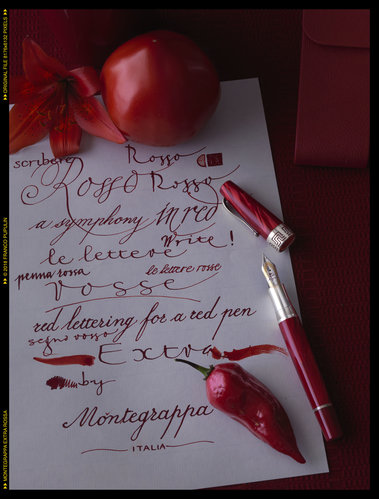 ORIGINAL FILE 8176x6132 PIXELS
© 2018 FRANCO PUPULIN
MONTEGRAPPA EXTRA ROSSA
scribere
Rosso
Rosso Rosso
a symphony in red
le lettere Write!
penna rossa le lettere rosse
rosse
red lettering for a red pen
segno rosso
Extra
by
Montegrappa
ITALIA